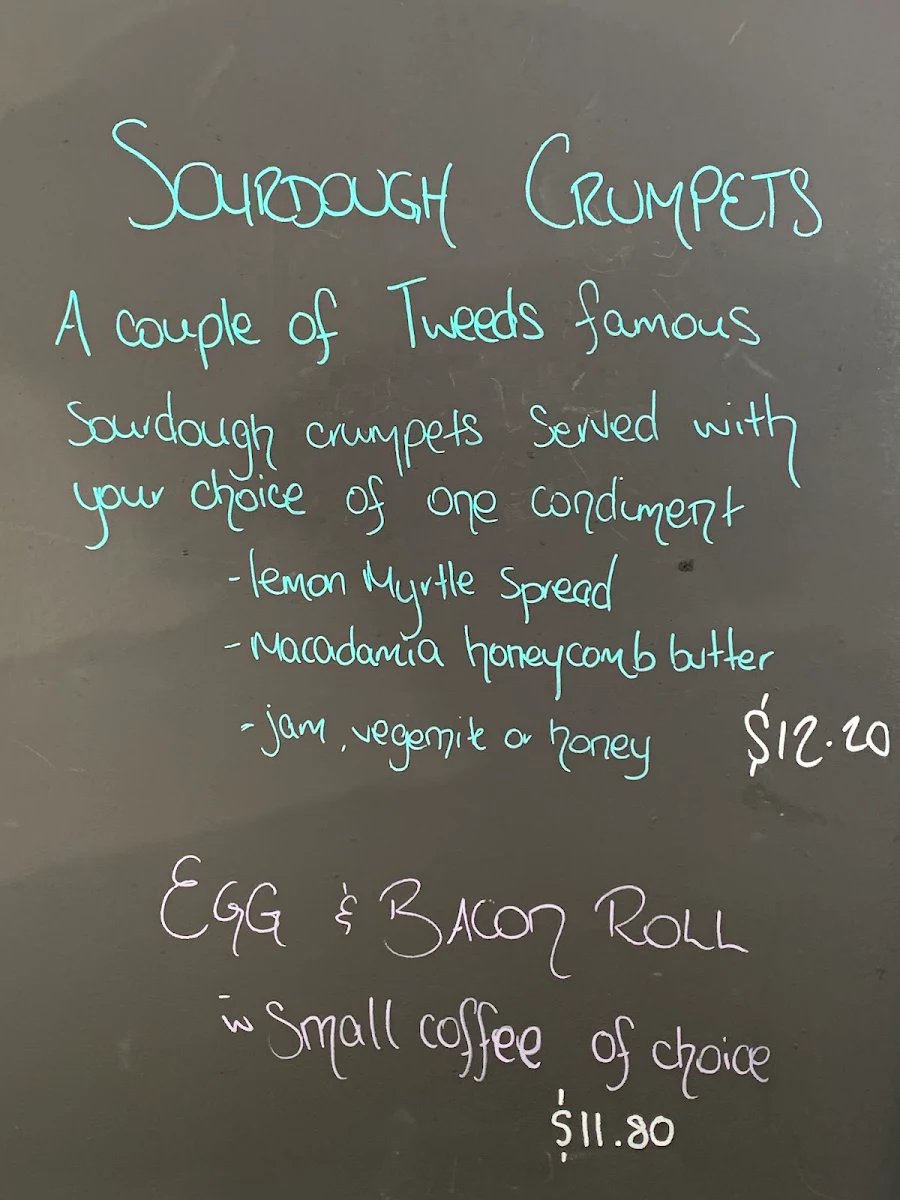 SOURDOUGH CRUMPETS
A couple of Tweeds famous
Sourdough crumpets Served with
your choice of one condiment
- lemon Myrtle Spread
- Macadamia honeycomb butter
- jam, vegemite or honey $12.20
EGG & BACON ROLL
w̄ Small coffee of choice
$11.80